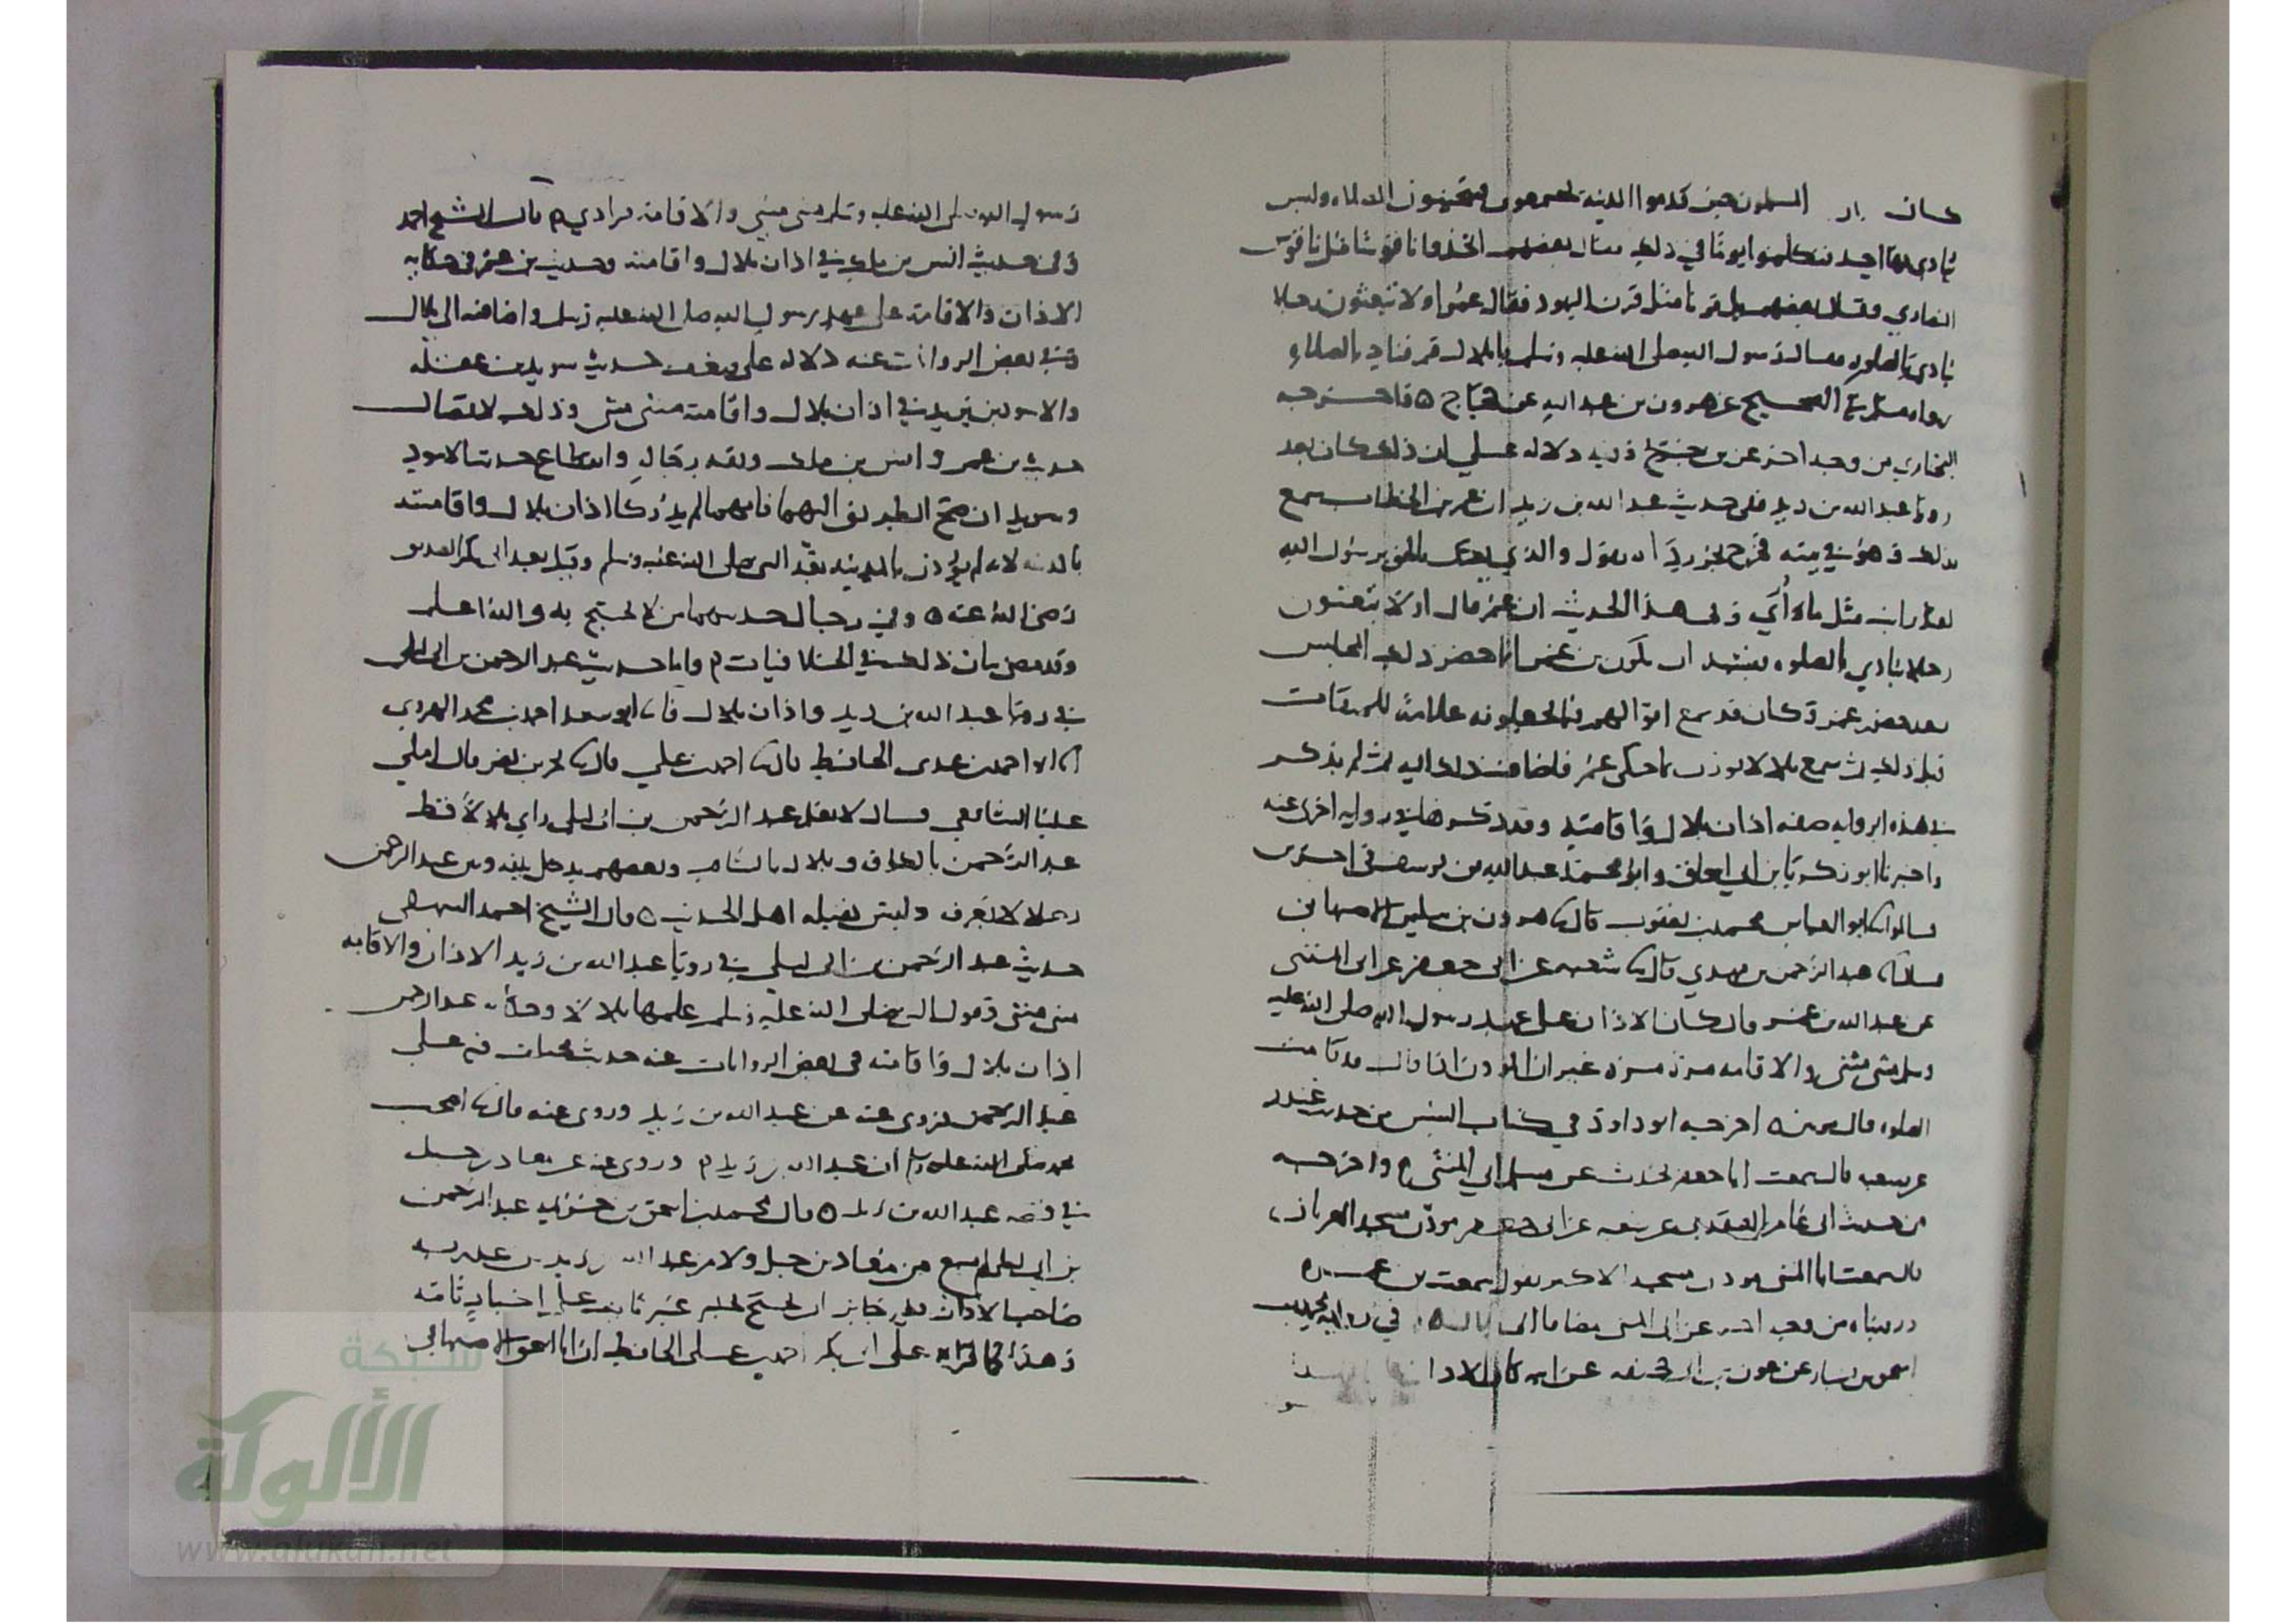 كان المسلمون حين قدموا المدينة يجتمعون فيتحينون الصلاة وليس
ينادي بها احد فتكلموا يوما في ذلك فقال بعضهم اتخذوا ناقوسا مثل ناقوس
النصارى وقال بعضهم بل قرنا مثل قرن اليهود فقال عمر اولا تبعثون رجلا
ينادي بالصلوه فقال رسول الله صلى الله عليه وسلم يا بلال قم فناد بالصلاة
رواه مسلم في الصحيح عن هرون بن عبد الله عن حجاج ٥ واخرجه
البخاري من وجه اخر عن بن جريج وفيه دلاله على ان ذلك كان بعد
رويا عبد الله بن زيد ففي حديث عبد الله بن زيد ان عمر بن الخطاب سمع
بذلك وهو في بيته فخرج يجر رداءه يقول والذي بعثك بالحق يرسول الله
لقد رايت مثل ما رأي وفي هذا الحديث ان عمر قال اولا تبعثون
رجلا ينادي بالصلوه فيشبه ان يكون بن عمر انما حضر ذلك المجلس
بعد حضور عمر وكان قد سمع اقوالهم فيما يجعلونه علامة للميقات
قبل ذلك ثم سمع بلالا يوذن بما حكى عمر فاضافه ذلك اليه ثم لم يذكر
في هذه الروايه صفه اذان بلال واقامته وقد ذكرها في روايه اخرى عنه
واخبرنا ابو زكريا بن ابي اسحق وابو محمد عبد الله بن يوسف في اخرين
قالوا انا ابو العباس محمد بن يعقوب قال نا هرون بن سليمن الاصبهاني
قال نا عبد الرحمن بن مهدي قال نا شعبه عن ابي جعفر عن ابي المثنى
عن عبد الله بن عمر قال كان الاذان على عهد رسول الله صلى الله عليه
وسلم مثنى مثنى والاقامه مرة مرة غير ان الموذن اذا قال قد قامت
الصلوه قال مرتين ٥ اخرجه ابو داود في كتاب السنن من حديث غندر
عن شعبه قال سمعت ابا جعفر يحدث عن مسلم ابي المثنى واخرجه
من حديث ابي عامر العقدي عن شعبه عن ابي جعفر موذن مسجد العريان
قال سمعت ابا المثنى موذن مسجد الاكبر يقول سمعت بن عمر ٥
ورويناه من وجه اخر عن ابي المثنى في روايه محمد بن
اسحق بن يسار عن عون بن ابي جحيفه عن ابيه كان الاذان
رسول الله صلى الله عليه وسلم مثنى مثنى والاقامة فرادي م قال الشيخ احمد
وفي حديث انس بن مالك في اذان بلال واقامته وحديث بن عمر في حكايه
الاذان والاقامة على عهد رسول الله صلى الله عليه وسلم واضافته الى بلال
في بعض الروايات عنه دلاله على ضعف حديث سويد بن غفله
والاسود بن يزيد في اذان بلال واقامته مثنى مثنى وذلك لاتصال
حديث بن عمر وانس بن مالك وثقه رجاله وانقطاع حديث الاسود
وسويد ان صح الطريق اليهما فانهما لم يدركا اذان بلال واقامته
بالمدينه لانه لم يؤذن بالمدينه بعد النبي صلى الله عليه وسلم وقيل بعد ابي بكر الصديق
رضي الله عنه ٥ وفي رجال حديثهما من لا يحتج به والله اعلم
وقد مضى بيان ذلك في الخلافيات م واما حديث عبد الرحمن بن ابي ليلى
في رويا عبد الله بن زيد واذان بلال فانا ابو سعد احمد بن محمد الهروي
انا احمد بن عدي الحافظ قال نا احمد بن علي قال نا بحر بن نصر قال املى
علينا الشافعي قال لا نعلم عبد الرحمن بن ابي ليلى راي بلالا قط
عبد الرحمن بالعراق وبلال بالشام وبعضهم يدخل بينه وبين عبد الرحمن
رجلا لا نعرف وليس يقبله اهل الحديث ٥ قال الشيخ احمد البيهقي
حديث عبد الرحمن بن ابي ليلى في رويا عبد الله بن زيد الاذان والاقامه
مثنى مثنى وقول النبي صلى الله عليه وسلم علمها بلالا وحكايه عبد الرحمن
اذان بلال واقامته في بعض الروايات عنه حديث مختلف فيه على
عبد الرحمن فروي عنه عن عبد الله بن زيد وروي عنه قال نا اصحاب
محمد صلى الله عليه وسلم ان عبد الله بن زيد م وروي عنه عن معاذ بن جبل
في قصه عبد الله بن زيد ٥ قال محمد بن اسحق بن خزيمه عبد الرحمن
بن ابي ليلى لم يسمع من معاذ بن جبل ولا من عبد الله بن زيد بن عبد ربه
صاحب الاذان فغير جائز ان يحتج بخبر غير ثابت على اخبار ثابته
وهذا فيما قراه على ابي بكر احمد بن علي الحافظ ان ابا اسحق الاصبهاني
شبكة
الألوكة
www.alukah.net